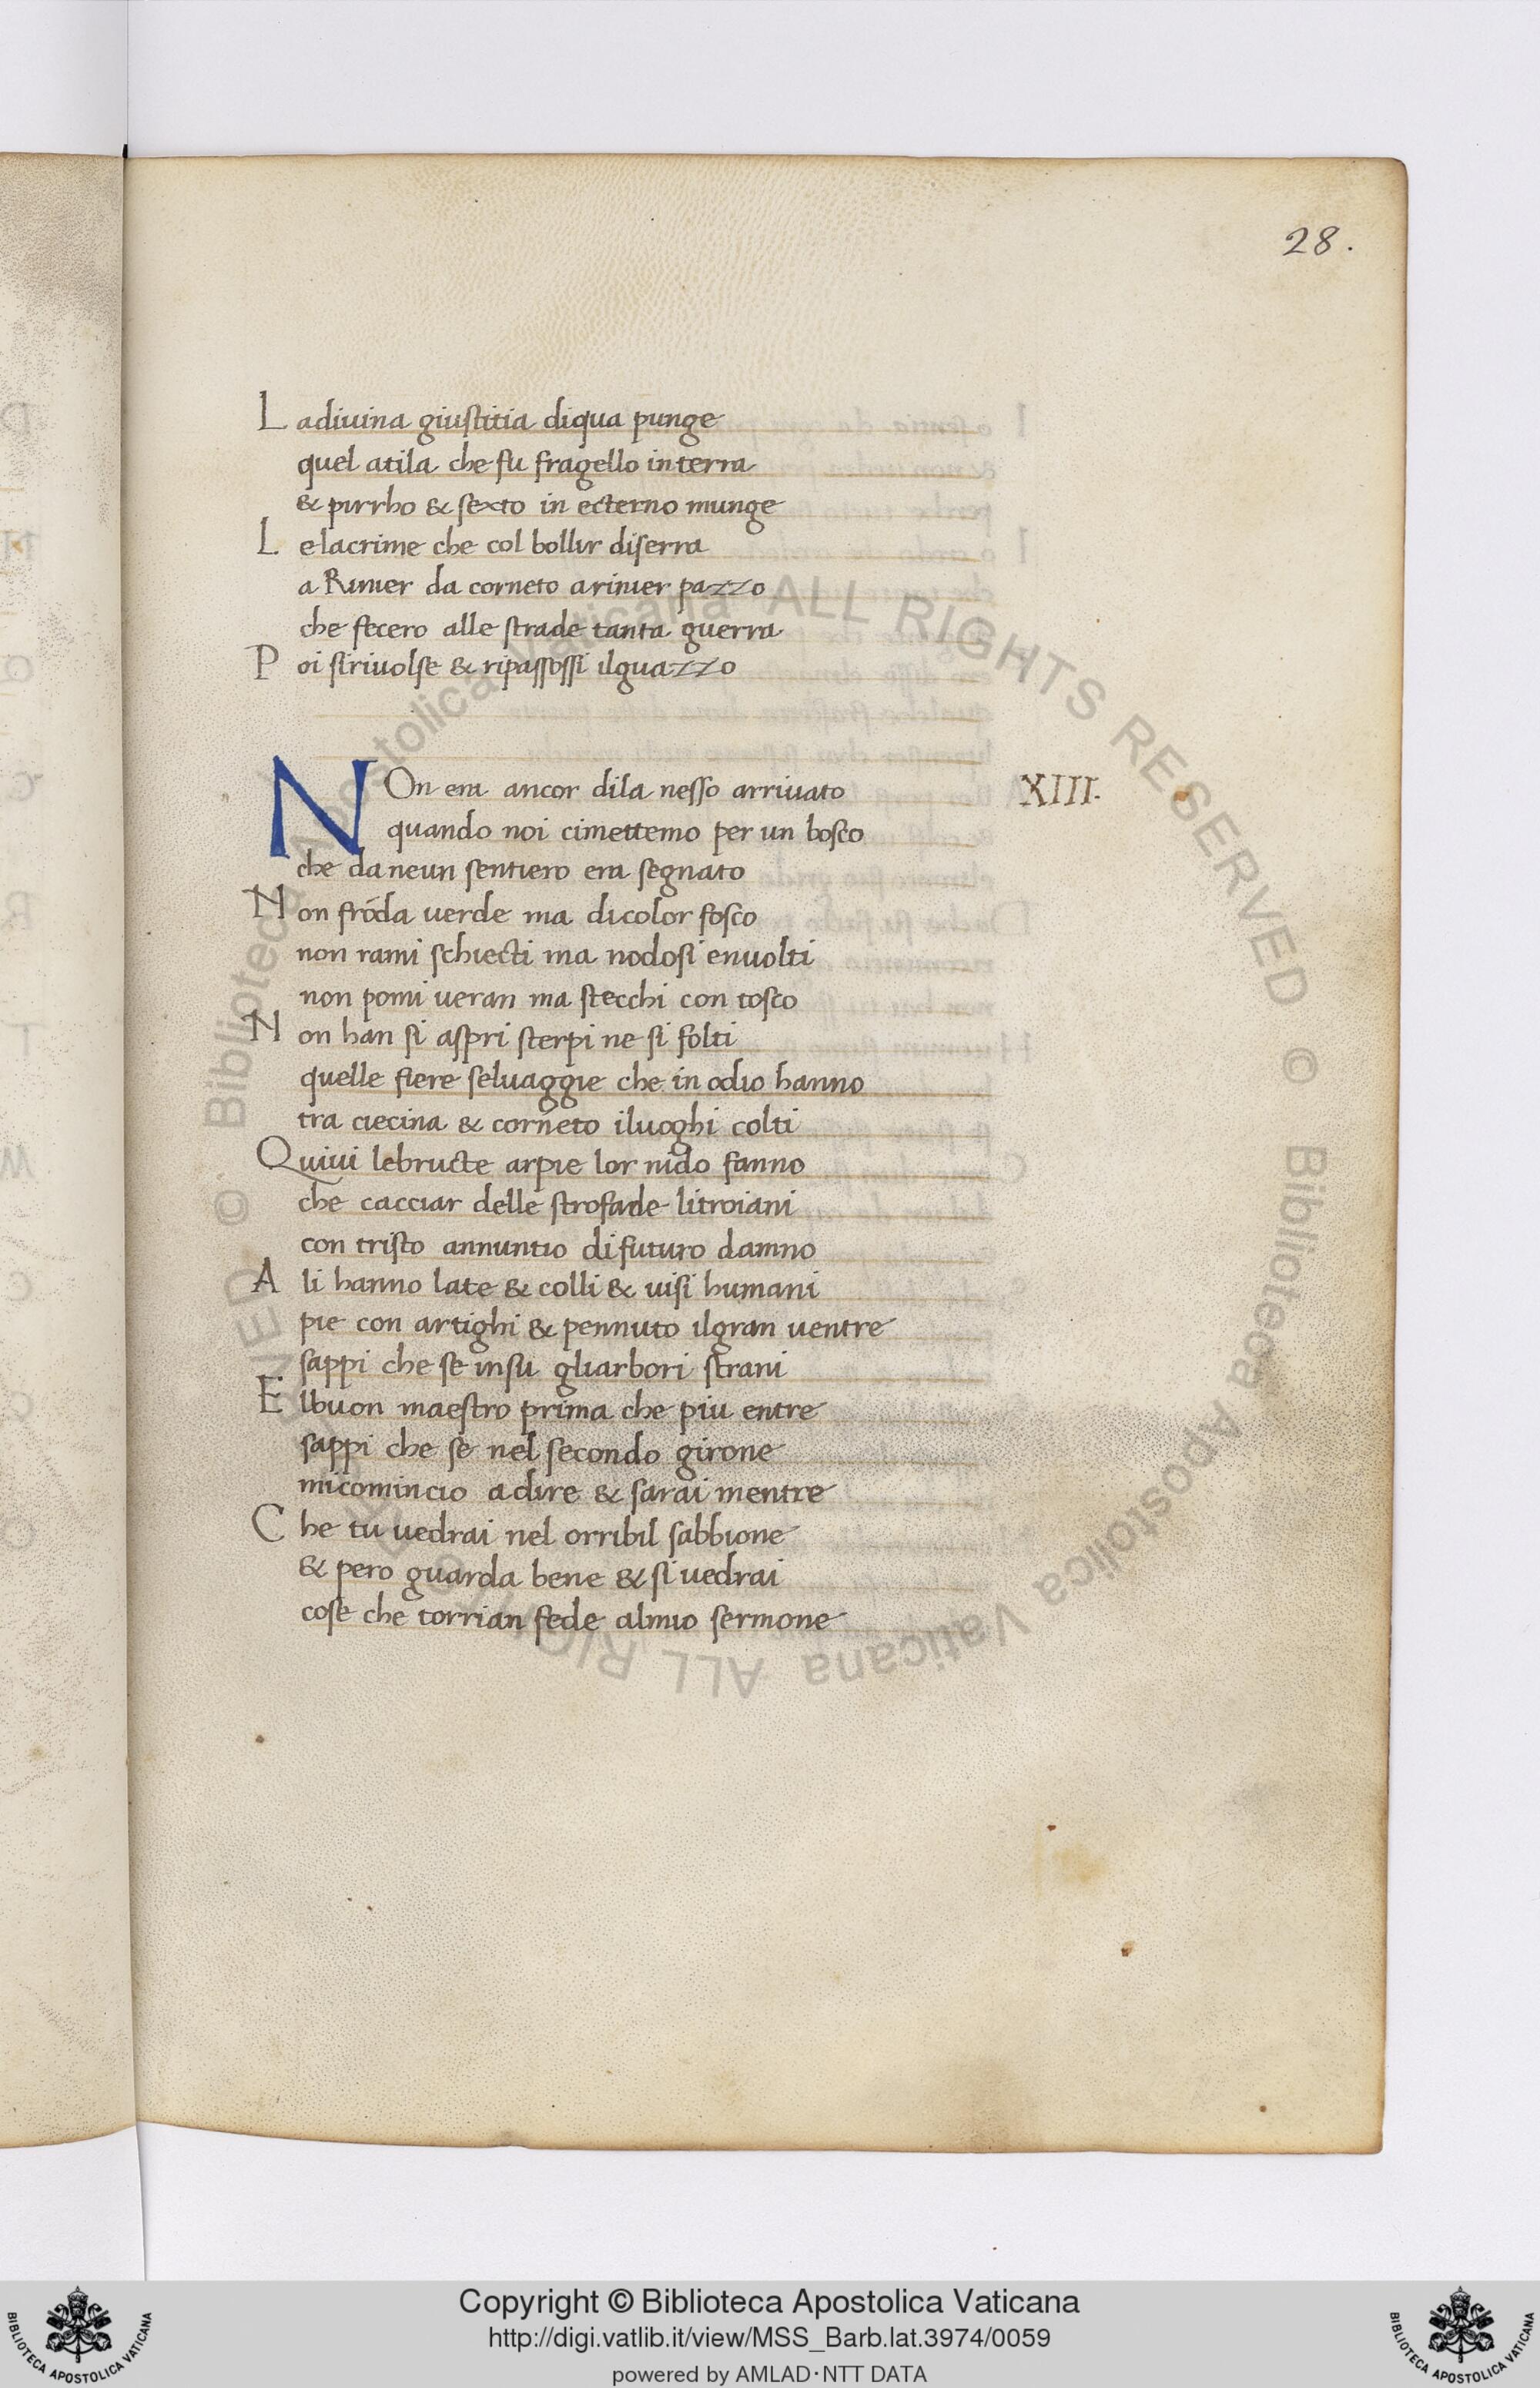 28.
L adiuina giustitia diqua punge
quel atila che fu fragello interra
& pirrho & sexto in ecterno munge
L elacrime che col bollir diserra
a Rinier da corneto arinier pazzo
che fecero alle strade tanta guerra
P oi siriuolse & ripassossi ilguazzo
NOn era ancor dila nesso arriuato XIII.
quando noi cimettemo per un bosco
che daneun sentiero era segnato
N on frōda uerde ma dicolor fosco
non rami schiecti ma nodosi enuolti
non pomi ueran ma stecchi con tosco
N on han si aspri sterpi ne si folti
quelle fiere seluaggie che in odio hanno
tra ciecina & corneto iluoghi colti
Quiui lebructe arpie lor nido fanno
che cacciar delle strofade litroiani
con tristo annuntio difuturo damno
A li hanno late & colli & uisi humani
pie con artighi & pennuto ilgran uentre
sappi che se insu gliarbori strani
E lbuon maestro prima che piu entre
sappi che se nel secondo girone
micomincio adire & sarai mentre
C he tu uedrai nel orribil sabbione
& pero guarda bene & si uedrai
cose che torrian fede almio sermone
Biblioteca Apostolica Vaticana ALL RIGHTS RESERVED ©
Copyright © Biblioteca Apostolica Vaticana
http://digi.vatlib.it/view/MSS_Barb.lat.3974/0059
powered by AMLAD·NTT DATA
BIBLIOTECA APOSTOLICA VATICANA
BIBLIOTECA APOSTOLICA VATICANA